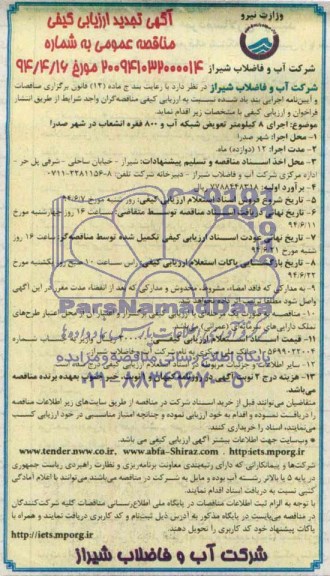 وزارت نیرو
آگهی تجدید ارزیابی کیفی
مناقصه عمومی به شماره
۲۰۰۹۴۱۰۳۲۰۰۰۰۱۴ مورخ ۹۴/۴/۱۶
شرکت آب و فاضلاب شیراز
شرکت آب و فاضلاب شیراز در نظر دارد با رعایت بند ج ماده (۱۲) قانون برگزاری مناقصات
و آیین‌نامه اجرایی بند یاد شده نسبت به ارزیابی کیفی مناقصه‌گران واجد شرایط از طریق انتشار
فراخوان و ارزیابی کیفی با مشخصات زیر اقدام نماید.
موضوع: اجرای ۸ کیلومتر تعویض شبکه آب و ۸۰۰ فقره انشعاب در شهر صدرا
۱- محل اجرا: شهر صدرا
۲- مدت اجرا: ۱۲ (دوازده) ماه.
۳- محل اخذ اسناد مناقصه و تسلیم پیشنهادات: شیراز - خیابان ساحلی - شرقی پل حر -
اداره مرکزی شرکت آب و فاضلاب شیراز - دبیرخانه شرکت تلفن: ۸-۳۲۲۸۱۱۵۶-۰۷۱
۴- برآورد اولیه: ۷۷۸۸۴۴۸۳۱۸ ریال
۵- تاریخ شروع فروش اسناد استعلام ارزیابی کیفی: روز شنبه مورخ ۹۴/۶/۷
۶- تاریخ نهایی دریافت اسناد مناقصه توسط متقاضی: ساعت ۱۶ روز چهارشنبه مورخ
۹۴/۶/۱۱
۷- تاریخ نهایی عودت اسناد ارزیابی کیفی تکمیل شده توسط مناقصه‌گر: ساعت ۱۶ روز
شنبه مورخ
۸- تاریخ بازگشایی پاکات استعلام ارزیابی کیفی: راس ساعت ۱۰ صبح روز یکشنبه مورخ
۹۴/۶/۲۲
۹- به مدارکی که فاقد امضاء، مشروط، مخدوش و مدارکی که بعد از انقضاء مدت مقرر در این آگهی
واصل شود مطلقا ترتیب اثر داده نخواهد شد.
ParsNamadData
پایگاه اطلاع رسانی مناقصه و مزایده
۰۲۱-۸۸۳۴۹۶۷۰-۵
۱۲- سایر اطلاعات و جزئیات مربوط در اسناد استعلام ارزیابی کیفی درج شده است
۱۳- هزینه درج ۲ نوبت آگهی روزنامه بعهده برنده مناقصه
متقاضیان می‌توانند قبل از خرید اسناد شرکت در مناقصه از طریق سایت‌های زیر اطلاعات مناقصه
را دریافت نموده و اقدام به خود ارزیابی نموده و چنانچه امتیاز مناسبی در خود ارزیابی کسب
می‌نمایند، اسناد را خریداری کنند.
* وب‌سایت جهت اطلاعات بیشتر آگهی ارزیابی کیفی می باشد.
www.tender.nww.co.ir. www.abfa-Shiraz.com . http:iets.mporg.ir
شرکت‌ها و پیمانکارانی که دارای رتبه‌بندی معاونت برنامه‌ریزی و نظارت راهبردی ریاست جمهوری
در پایه ۵ یا بالاتر رشته آب بوده و مایل به شرکت در مناقصه می‌باشند می‌توانند با اعلام آمادگی
کتبی نسبت به دریافت اسناد اقدام نمایند.
با توجه به الزام ثبت اطلاعات مناقصات در پایگاه ملی اطلاع‌رسانی مناقصات کلیه شرکت‌کنندگان
در مناقصه می‌بایست در پایگاه مذکور به آدرس ذیل ثبت‌نام و کد کاربری دریافت نمایند و همراه با
پاکات پیشنهاد خود کد کاربری را تحویل دهند.
http://iets.mporg.ir
شرکت آب و فاضلاب شیراز